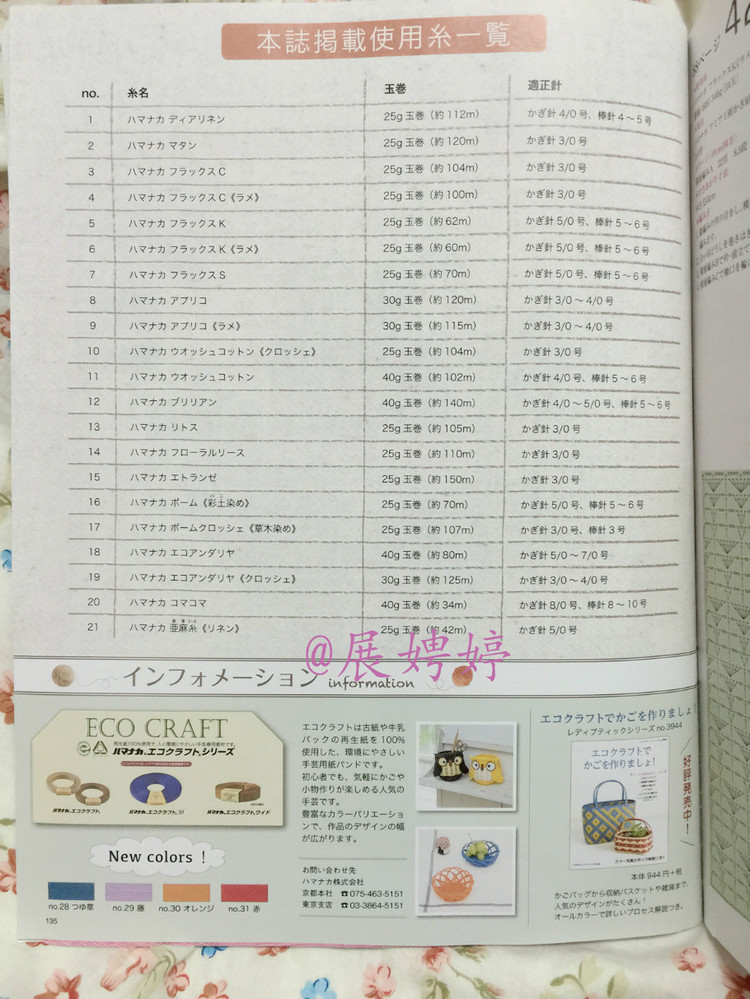 本誌掲載使用糸一覧
no. 糸名 玉巻 適正針
1 ハマナカ ディアリネン 25g 玉巻（約 112m） かぎ針 4/0 号、棒針 4～5 号
2 ハマナカ マタン 25g 玉巻（約 120m） かぎ針 3/0 号
3 ハマナカ フラックス C 25g 玉巻（約 104m） かぎ針 3/0 号
4 ハマナカ フラックス C《ラメ》 25g 玉巻（約 100m） かぎ針 3/0 号
5 ハマナカ フラックス K 25g 玉巻（約 62m） かぎ針 5/0 号、棒針 5～6 号
6 ハマナカ フラックス K《ラメ》 25g 玉巻（約 60m） かぎ針 5/0 号、棒針 5～6 号
7 ハマナカ フラックス S 25g 玉巻（約 70m） かぎ針 5/0 号、棒針 5～6 号
8 ハマナカ アプリコ 30g 玉巻（約 120m） かぎ針 3/0～4/0 号
9 ハマナカ アプリコ《ラメ》 30g 玉巻（約 115m） かぎ針 3/0～4/0 号
10 ハマナカ ウオッシュコットン《クロッシェ》 25g 玉巻（約 104m） かぎ針 3/0 号
11 ハマナカ ウオッシュコットン 40g 玉巻（約 102m） かぎ針 4/0 号、棒針 5～6 号
12 ハマナカ ブリリアン 40g 玉巻（約 140m） かぎ針 4/0～5/0 号、棒針 5～6 号
13 ハマナカ リトス 25g 玉巻（約 105m） かぎ針 3/0 号
14 ハマナカ フローラルリース 25g 玉巻（約 110m） かぎ針 3/0 号
15 ハマナカ エトランゼ 25g 玉巻（約 150m） かぎ針 3/0 号
16 ハマナカ ポーム《彩土染め》 25g 玉巻（約 70m） かぎ針 5/0 号、棒針 5～6 号
17 ハマナカ ポームクロッシェ《草木染め》 25g 玉巻（約 107m） かぎ針 3/0 号、棒針 3 号
18 ハマナカ エコアンダリヤ 40g 玉巻（約 80m） かぎ針 5/0～7/0 号
19 ハマナカ エコアンダリヤ《クロッシェ》 30g 玉巻（約 125m） かぎ針 3/0～4/0 号
20 ハマナカ コマコマ 40g 玉巻（約 34m） かぎ針 8/0 号、棒針 8～10 号
21 ハマナカ 亜麻糸《リネン》 25g 玉巻（約 42m） かぎ針 5/0 号
@展娉婷
インフォメーション information
ECO CRAFT
ハマナカ エコクラフト シリーズ
ハマナカ エコクラフト
ハマナカ エコクラフト
ハマナカ エコクラフト ワイド
New colors !
no.28 つゆ草 no.29 藤 no.30 オレンジ no.31 赤
136
エコクラフトは古紙や牛乳
パックの再生紙を 100%
使用した、環境にやさしい
手芸用紙バンドです。
初心者でも、気軽にかごや
小物作りが楽しめる人気の
手芸です。
豊富なカラーバリエーショ
ンで、作品のデザインの幅
が広がります。
お問い合わせ先
ハマナカ株式会社
京都本社 ☎075-463-5151
東京支店 ☎03-3864-5151
エコクラフトでかごを作りましょ
レディブティックシリーズ no.3944
エコクラフトで
かごを作りましょ！
好評発売中！
本体 944 円＋税
かごバッグから収納バスケットや雑貨まで、
人気のデザインがたくさん！
オールカラーで詳しいプロセス解説つき。